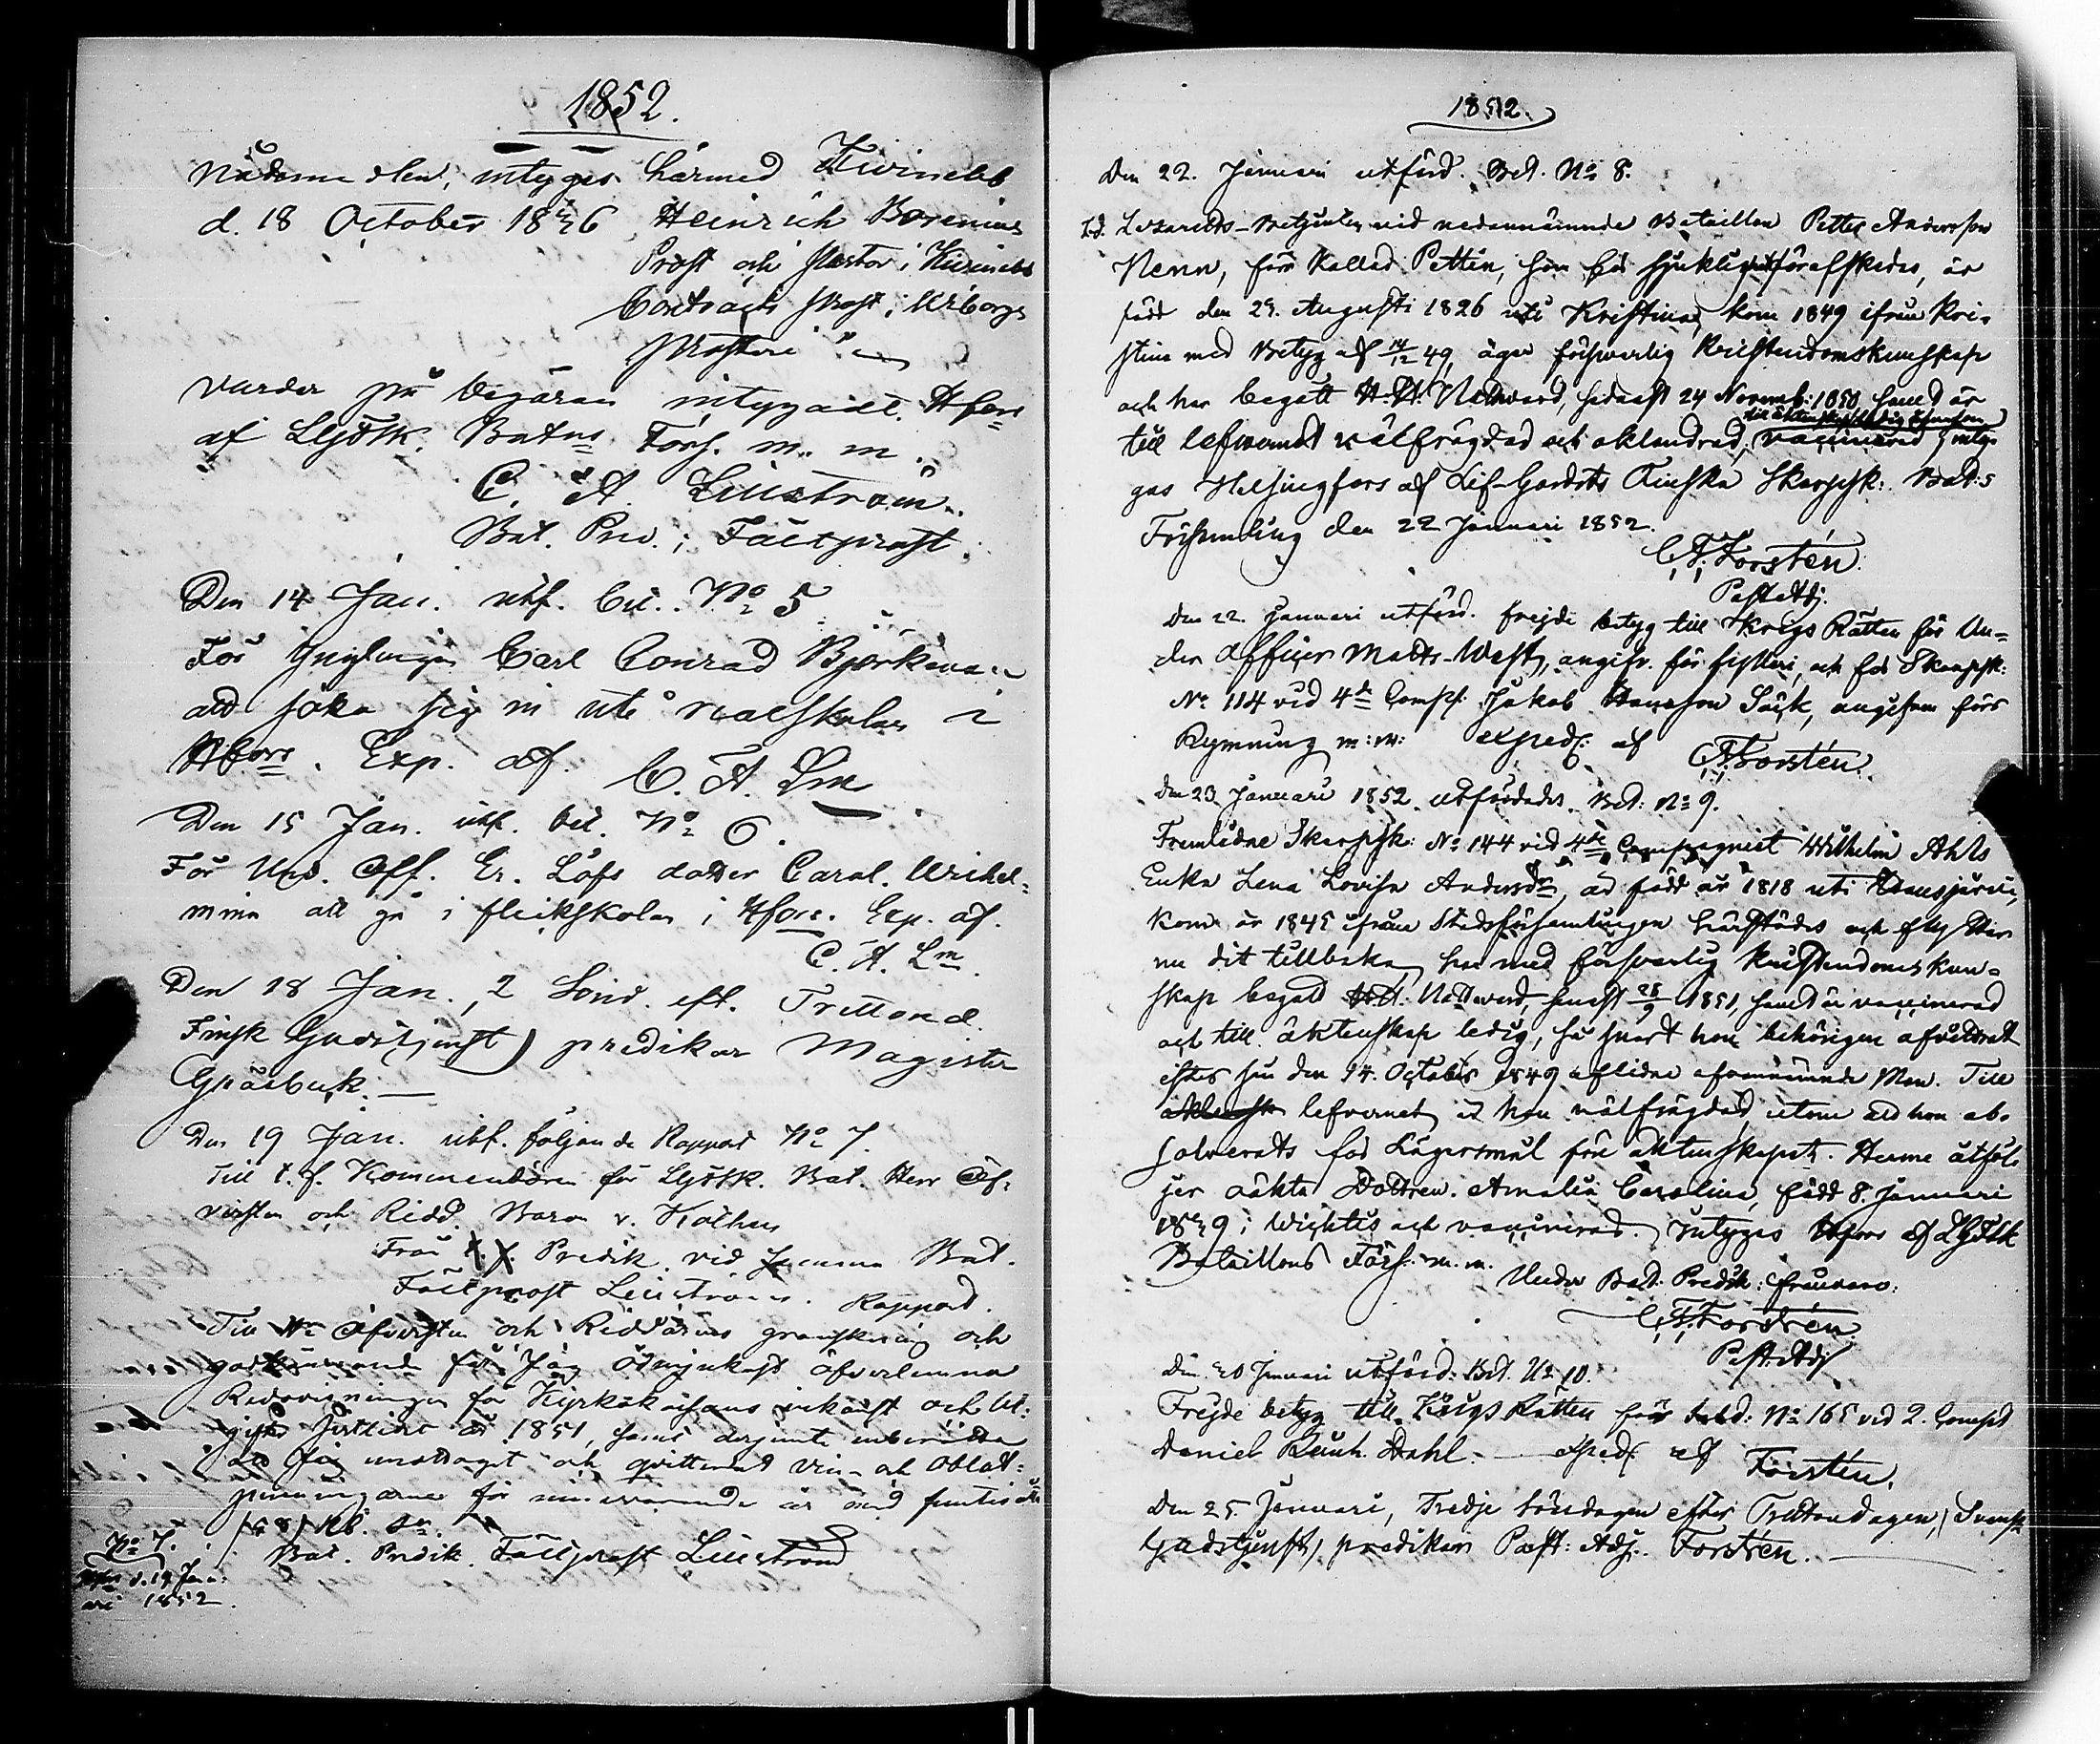 1852.
nådenne den, intyges härmed Kivinebb
d. 18 October 1836 Heinrich Borenius
Prost och Pastor i Kivinebb
Contracts Prost i Wiborgs
Prosteri
varder på begäran intygadt. Hfors
af LgFSk. Batns Förs. m. m.
C. A. Liuström.
Bat. Pred.; Fältprost.
Den 14 Jan. utf. bet. No 5
För Ynglingen Carl Conrad Björkman
att söka sig in uti realskolan i
Hfors. Exp. af. C. A. Lm
Den 15 Jan. utf. bet. No 6.
För Und. Off. Er. Löfs dotter Carol. Wilhel-
mina att gå i flickskolan i Hfors. Exp. af.
C. A. Lm.
Den 18 Jan., 2 Sönd. eft. Trettond.
Finsk Gudstjenst) predikar Magister
Gråsbeck. —
Den 19 Jan. utf. följande Rapport No 7.
Till t. f. Kommendören för LgFSk. Bat. Herr Öf-
versten och Ridd. Baron v. Kothen
Från t. f. Predik. vid samma Bat.
Fältprost Liuström. Rapport.
Till Hr Öfversten och Riddarens granskning och
godkännande får jag ödmjukast öfverlemna
Redovisningen för Kyrkokassans inkomst och Ut-
gift förflutet år 1851, samt derjemte inberätta
att jag emottaget och qvitterat vin- och Oblat-
penningarne för innevarande år med femtio åtta
(58) Rb. Sr.
No 7. Bat. Predik. Fältprost Liuström
Hfors d. 19 Janu-
ari 1852.
1852.
Den 22. Januari utfärd. Bet. No 8.
Lazaretts-betjenten vid nedannämnde Bataillon Petter Andersson
Nenn, förr kallad Pettin, som för sjuklighet förafskedas, är
född den 29. Augusti 1826 uti Kristina, kom 1849 ifrån Kri-
stina med betyg af 14/2 49, äger försvarlig Kristendomskunskap
och har begått H. H. Nattvard, sednast 24 Novemb: 1850, samt är
till äktenskap ledig
till lefvernet välfrägdad och oklandrad, vaccinerad, inty-
gas Helsingfors af Lif-Gardets Finska Skarpsk: Bat:s
Församling den 22 Januari 1852.
C. F. Forstén.
Past. Adj.
Den 22. Januari utfärd. frejde betyg till Krigs Rätten för Un-
der Officer Matts West, angifv. för fylleri, och för Skarpsk:
No 114 vid 4de Comp: Jakob Hansson Säck, angifven för
Rymning m: m: exped: af C. F. Forstén.
Den 23 Januari 1852. utfärdades. Bet: No 9.
Framlidne Skarpsk: No 144 vid 4de Compagniet Wilhelm Ahls
Enka Lena Lovisa Andersdr, är född år 1818 uti Hausjärvi,
kom år 1845 ifrån Stadsförsamlingen härstädes och flyttar
nu dit tillbaka, har med försvarlig Kristendomskun-
skap begått H. H. Nattvard, senast 28/9 1851, samt är vaccinerad
och till äktenskap ledig, så snart hon behörigen afvittrat
efter sin den 14. October 1849 aflidne ofvannämnde Man. Till
lefvernet är hon välfrägdad, utom att hon ab-
solverats för Lägersmål före äktenskapet. Henne åtföl-
jer oäkta Dottren. Amalia Carolina, född 8. Januari
1839 i Wichtis och vaccinerad. Intyges Hfors af LGFSk
Bataillons Förs: m. m. Under Bat. Predik: frånvaro:
C. F. Forstén.
Past. Adj.
Den 20 Januari utfärd. Bet. No 10.
Frejde betyg till Krigs Rätten för Sold: No 165 vid 2. Comp:
Daniel Reinh. Dahl. — exped: af Forstén.
Den 25. Januari, Tredje Söndagen efter Trettondagen, (Svensk
Gudstjenst) predikar Past: Adj: Forstén. —